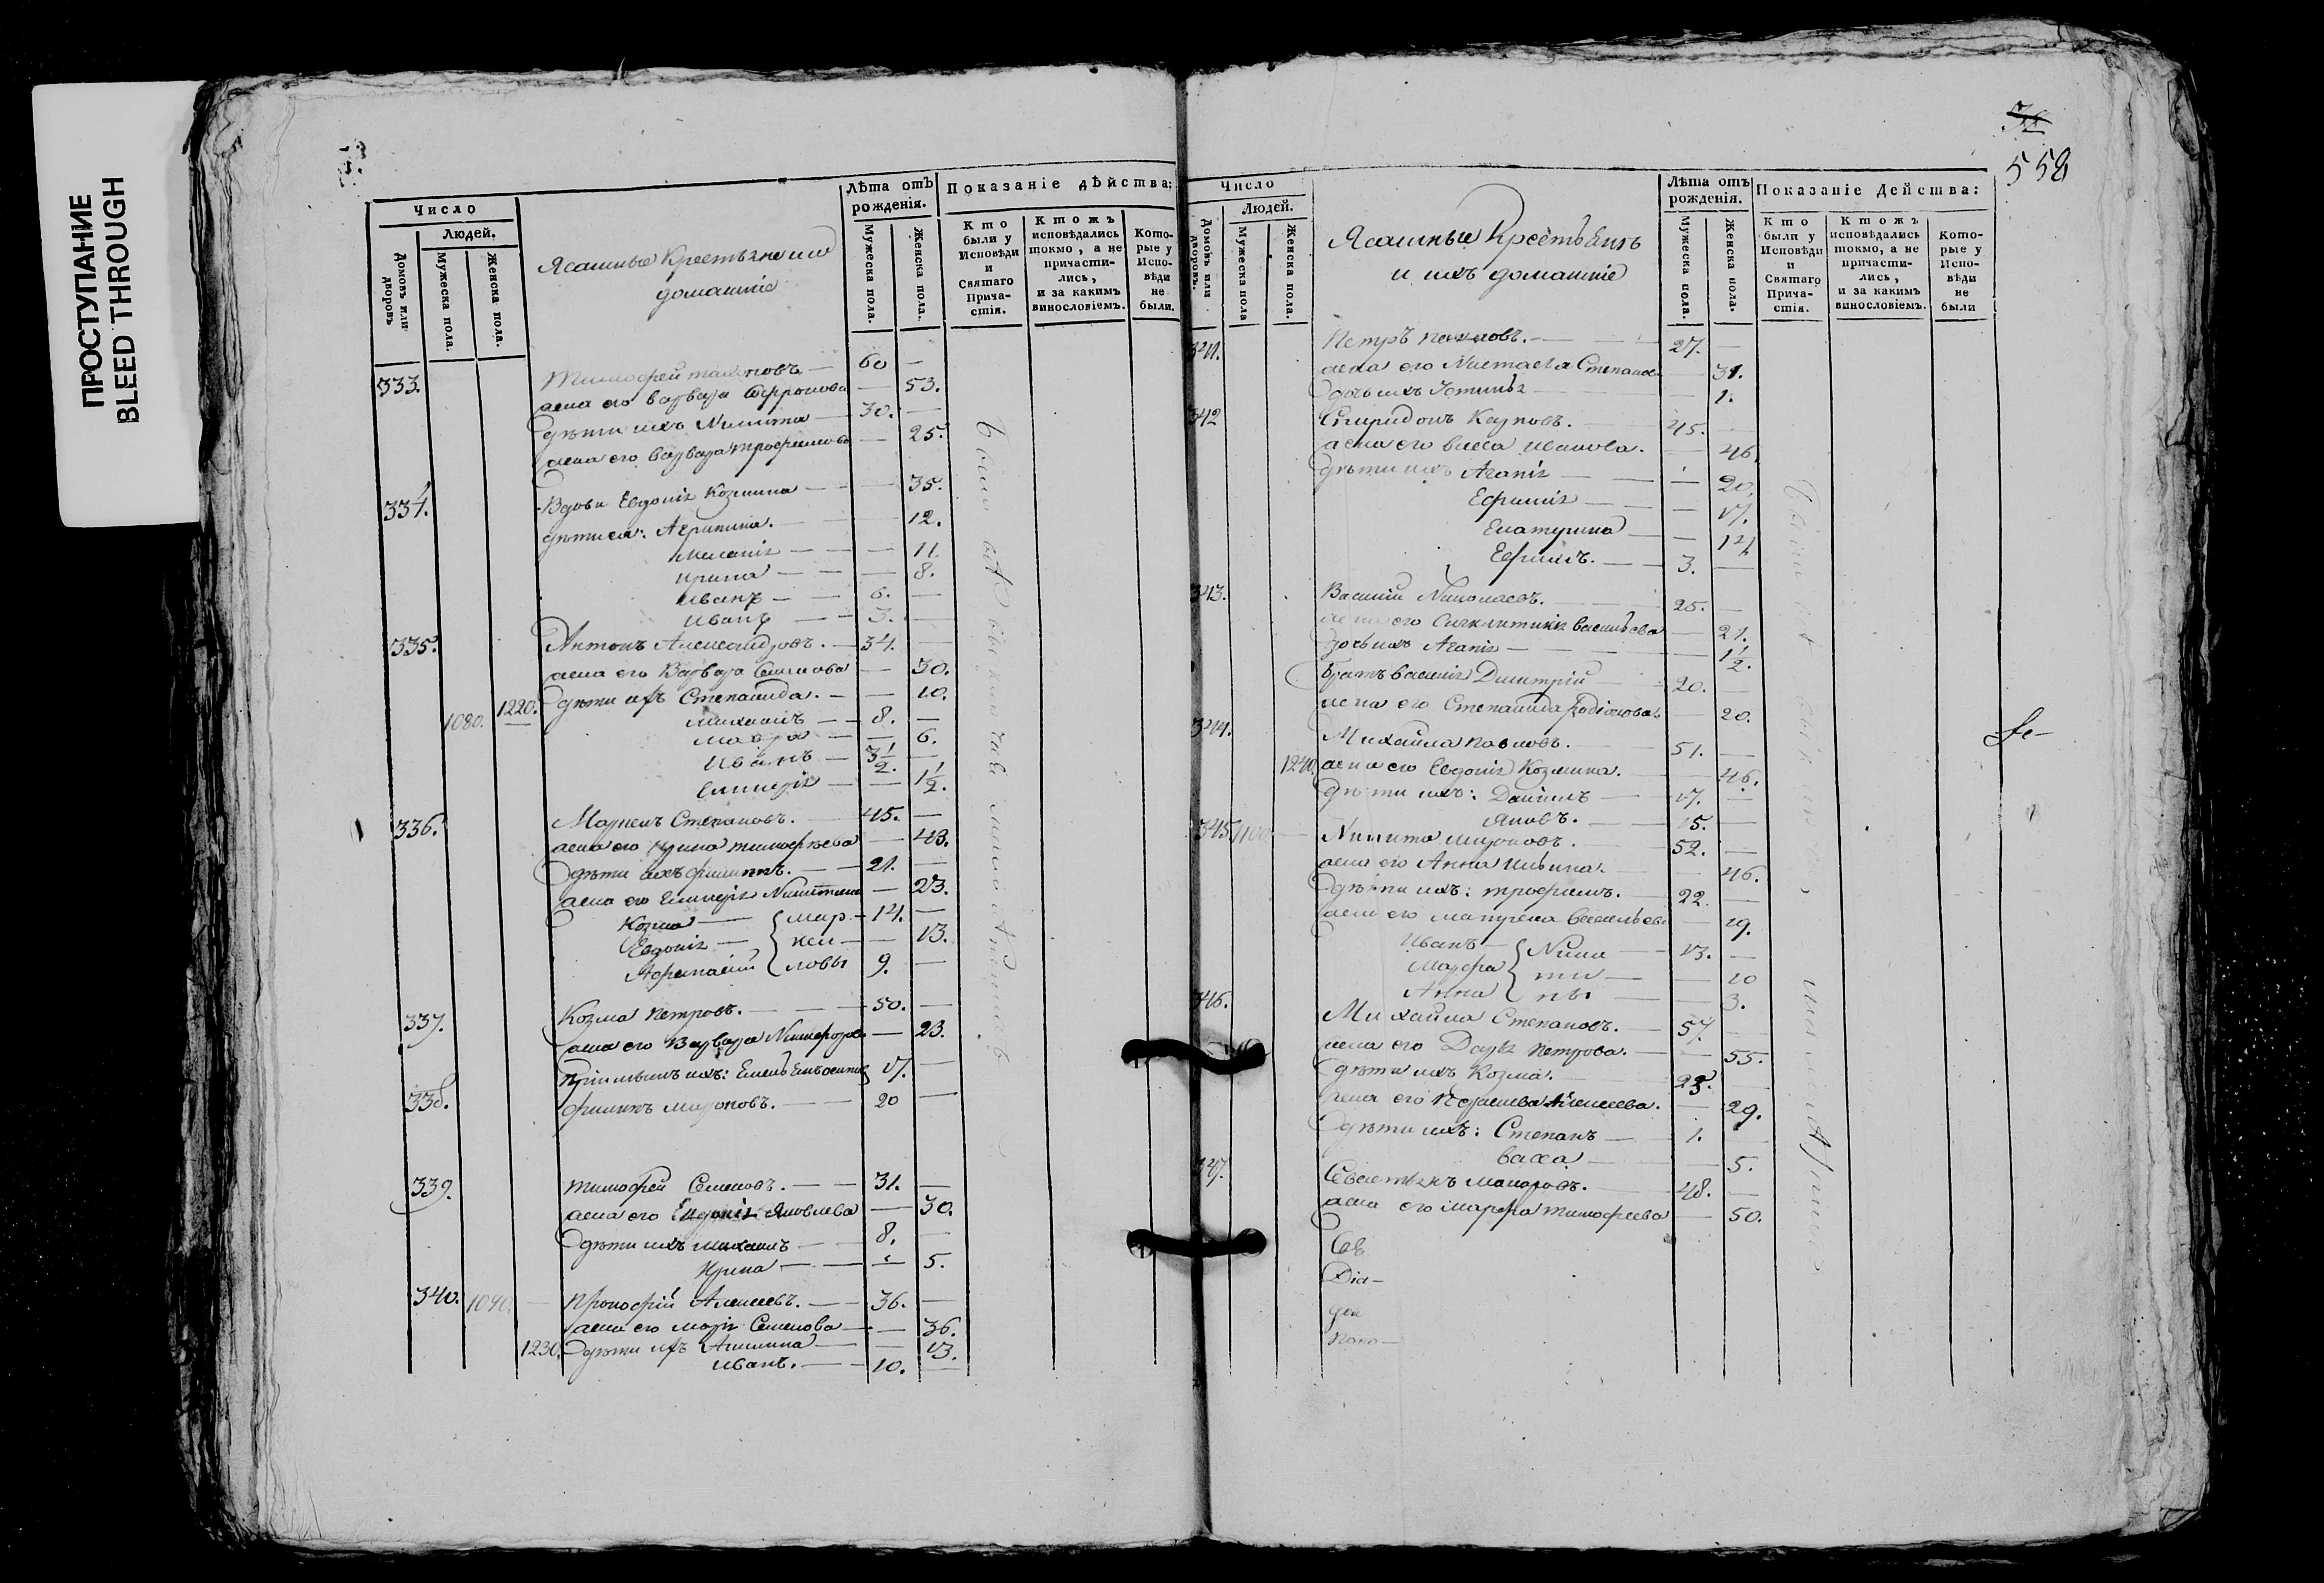 ПРОСТУПАНИЕ
BLEED THROUGH
558
Число
Людей.
Домовъ или дворовъ
Мужеска пола.
Женска пола.
Ясашные Крестьяне и их
домашние
Лѣта отъ рожденія.
Мужеска пола.
Женска пола.
Показаніе дѣйства:
Кто были у Исповѣди и Святаго Прича-стія.
Ктожъ исповѣдались токмо, а не причасти-лись, и за какимъ винословіемъ.
Кото-рые у Испо-вѣди не были.
333. Тимофей 60 —
жена его Варвара — 53.
дѣти ихъ Никита 30. —
жена его Варвара Трофимова — 25.
334. Вдова Евдокія Козмина — 35.
дѣти ея: Агрипина. — 12.
Меланія — 11.
Ирина — 8.
Иванъ 6. —
Иванъ 3. —
335. Антонъ Александровъ. 34. —
жена его Варвара Семенова — 30.
1080. 1220. дѣти ихъ Степанида. — 10.
Михаилъ 8. —
Мавра — 6.
Иванъ 3 1/2. —
Гликерія — 1 1/2.
336. Маркелъ Степановъ. 45. —
жена его Ирина Тимофѣева — 43.
дѣти ихъ Филиппъ. 21. —
жена его Гликерія Никитина — 23.
Козма Мар- 14. —
Евдокія кел- — 13.
Афанасий ловы 9. —
337. Козма Петровъ. 50. —
жена его Варвара Никифорова — 23.
Пріимышъ ихъ: Емельянъ 17. —
338. Филиппъ Мироновъ. 20 —
339. Тимофей Семеновъ. 31. —
жена его Евдокія Яковлева — 30.
дѣти ихъ Михаилъ 8. —
Ирина — 5.
340. 1090. Прокофій Алексеевъ. 36. —
жена его Марія Семенова — 36.
1230. дѣти ихъ Акилина — 13.
Иванъ. 10. —
Число
Людей.
Домовъ или дворовъ.
Мужеска пола
Женска пола.
Ясашные Крестьянъ
и ихъ домашніе
Лѣта отъ рожденія.
Мужеска пола.
Женска пола.
Показаніе Действа:
Кто были у Исповѣди и Святаго Прича-стія.
Ктожъ исповѣдались токмо, а не причасти-лись, и за какимъ винословіемъ.
Кото-рые у Испо-вѣди не были
341. Петръ 27. —
жена его Степанова — 31.
дочь ихъ Устинья — 1.
342 Спиридонъ Карповъ. 45. —
жена его Васса Иванова. — 46.
дѣти ихъ Агапія — 20.
Ефимія — 17.
Екатерина — 14
Ефимъ. 3. —
343. Василий Николаевъ. 25. —
жена его Сигклитикия Васильева — 21.
дочь ихъ Агапія — 1 1/2.
Братъ Василия Димитрій 20. —
жена его Степанида Родіонова — 20.
344. Михайла Павловъ. 51. —
1240. жена его Евдокія Козмина. — 46.
дѣти ихъ: Данiилъ 17. —
Яковъ. 15. —
345. 1100 Никита Мироновъ. 52. —
жена его Анна Ильина. — 46.
дѣти ихъ: Трофимъ. 22. —
жена его Матрена Васильева — 19.
Иванъ Ники- 13. —
Марфа ти- — 10
Анна ны — 3.
346. Михайла Степановъ. 57. —
жена его Дарья Петрова. — 55.
дѣти ихъ Козма. 23. —
жена его Параскева Алексеева. — 29.
дѣти ихъ: Степанъ 1. —
Васса — 5.
347. Севастьянъ Макаровъ. 48. —
жена его Марфа Тимофеева — 50.
Диа-
Попо-